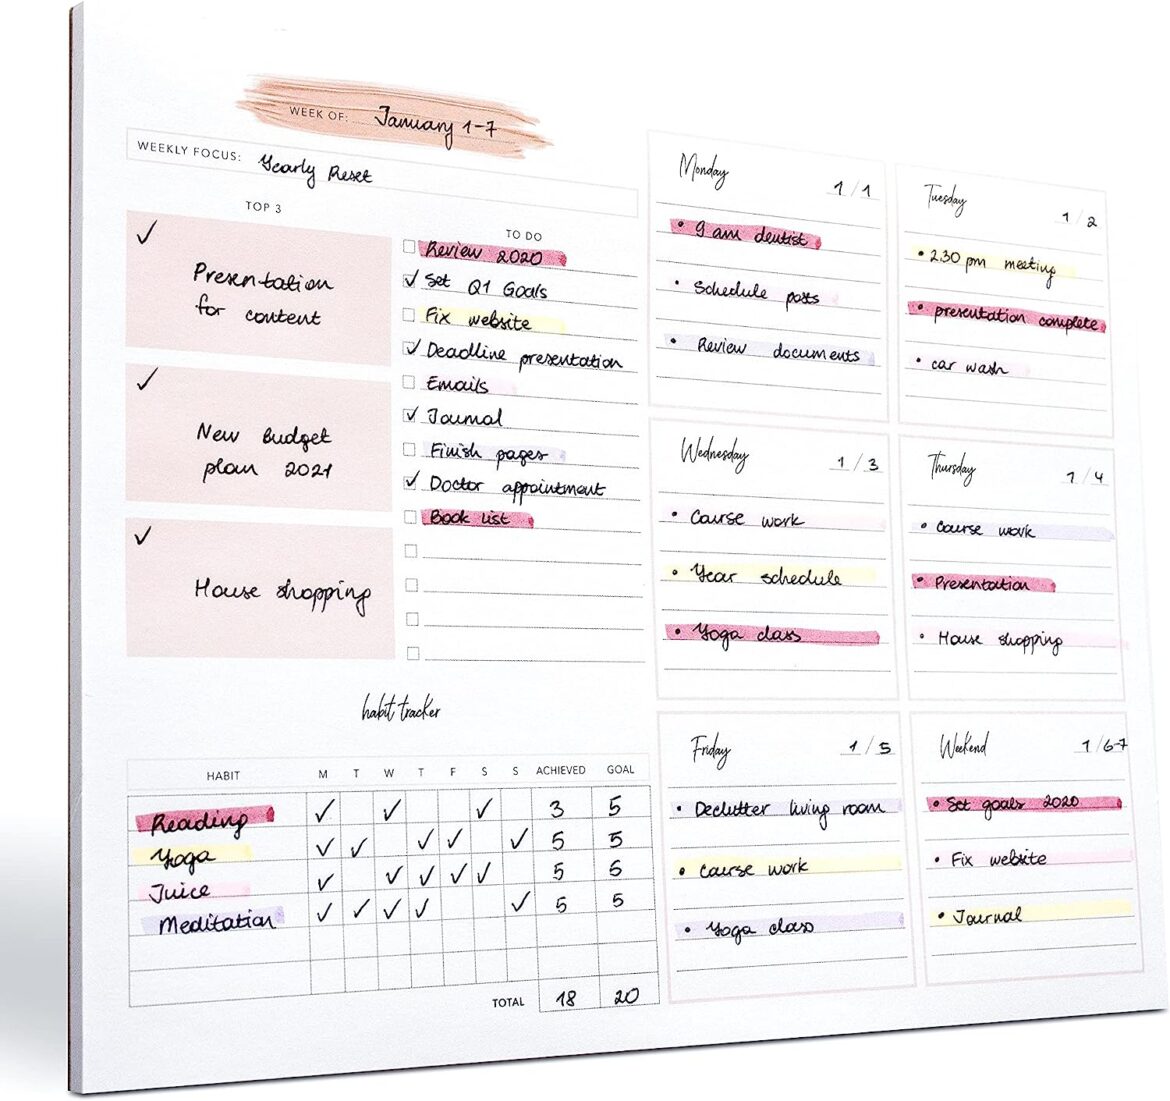 WEEK OF: January 1-7
WEEKLY FOCUS: Yearly Reset
TOP 3
✓
Presentation
for content
✓
New Budget
plan 2021
✓
House shopping
TO DO
Review 2020
✓ Set Q1 Goals
Fix website
✓ Deadline presentation
Emails
✓ Journal
Finish pages
✓ Doctor appointment
Book list
habit tracker
HABIT M T W T F S S ACHIEVED GOAL
Reading ✓ ✓ ✓ 3 5
Yoga ✓ ✓ ✓ ✓ ✓ 5 5
Juice ✓ ✓ ✓ ✓ ✓ 5 5
Meditation ✓ ✓ ✓ ✓ ✓ 5 5
TOTAL 18 20
Monday 1/1
• 9 am dentist
• Schedule posts
• Review documents
Tuesday 1/2
• 2.30 pm meeting
• presentation complete
• car wash
Wednesday 1/3
• Course work
• Year schedule
• Yoga class
Thursday 1/4
• Course work
• Presentation
• House shopping
Friday 1/5
• Declutter living room
• Course work
• Yoga class
Weekend 1/6-7
• Set goals 2020
• Fix website
• Journal